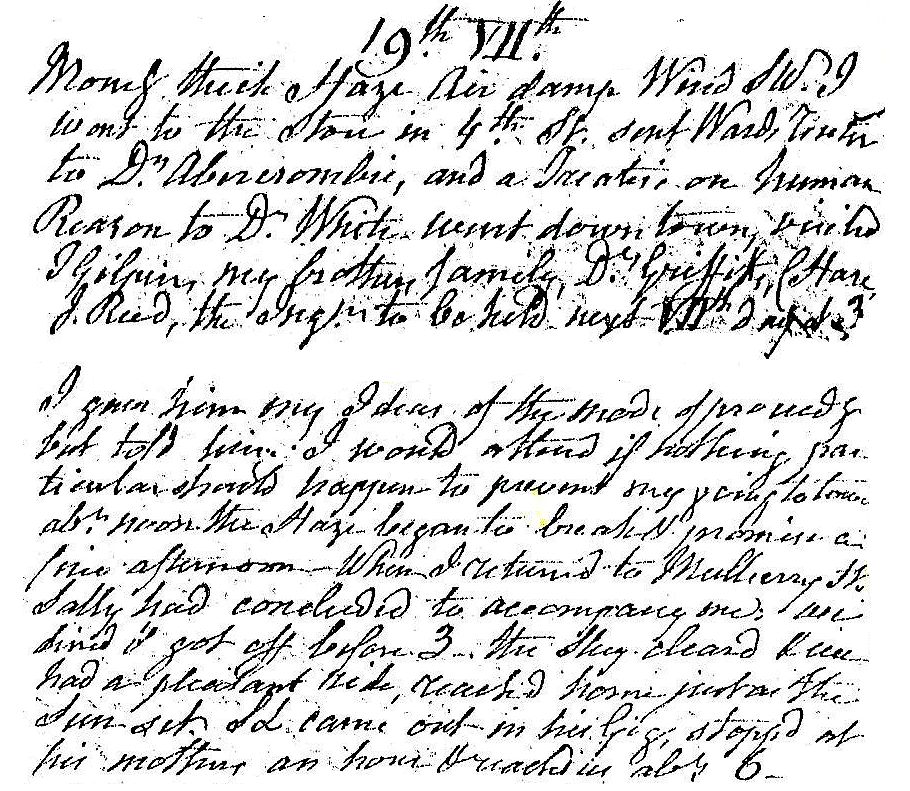 19th VIIth
Morng thick Haze Air damp Wind SW. I
went to the store in 4th St. sent Wards
to Dr. Abercrombie, and a Treatise on human
Reason to Dr. White went down town, visited
J Gilpin, my brothers family, Dr. Griffitts, C Hare
J. Reed, the to be held next VIIth day at 3
I gave him my Ideas of the mode of proceedg
but told him I would attend if nothing par
ticular should happen to prevent my going to town
abt. noon the Haze began to break & promise a
fine afternoon – When I returned to Mulberry St.
Sally had concluded to accompany me, we
dined & got off before 3 – the Sky cleard & we
had a pleasant ride, reached home just as the
Sun set. came out in his Gig, stopd at
his mothers an hour & reached us abt. 6 –